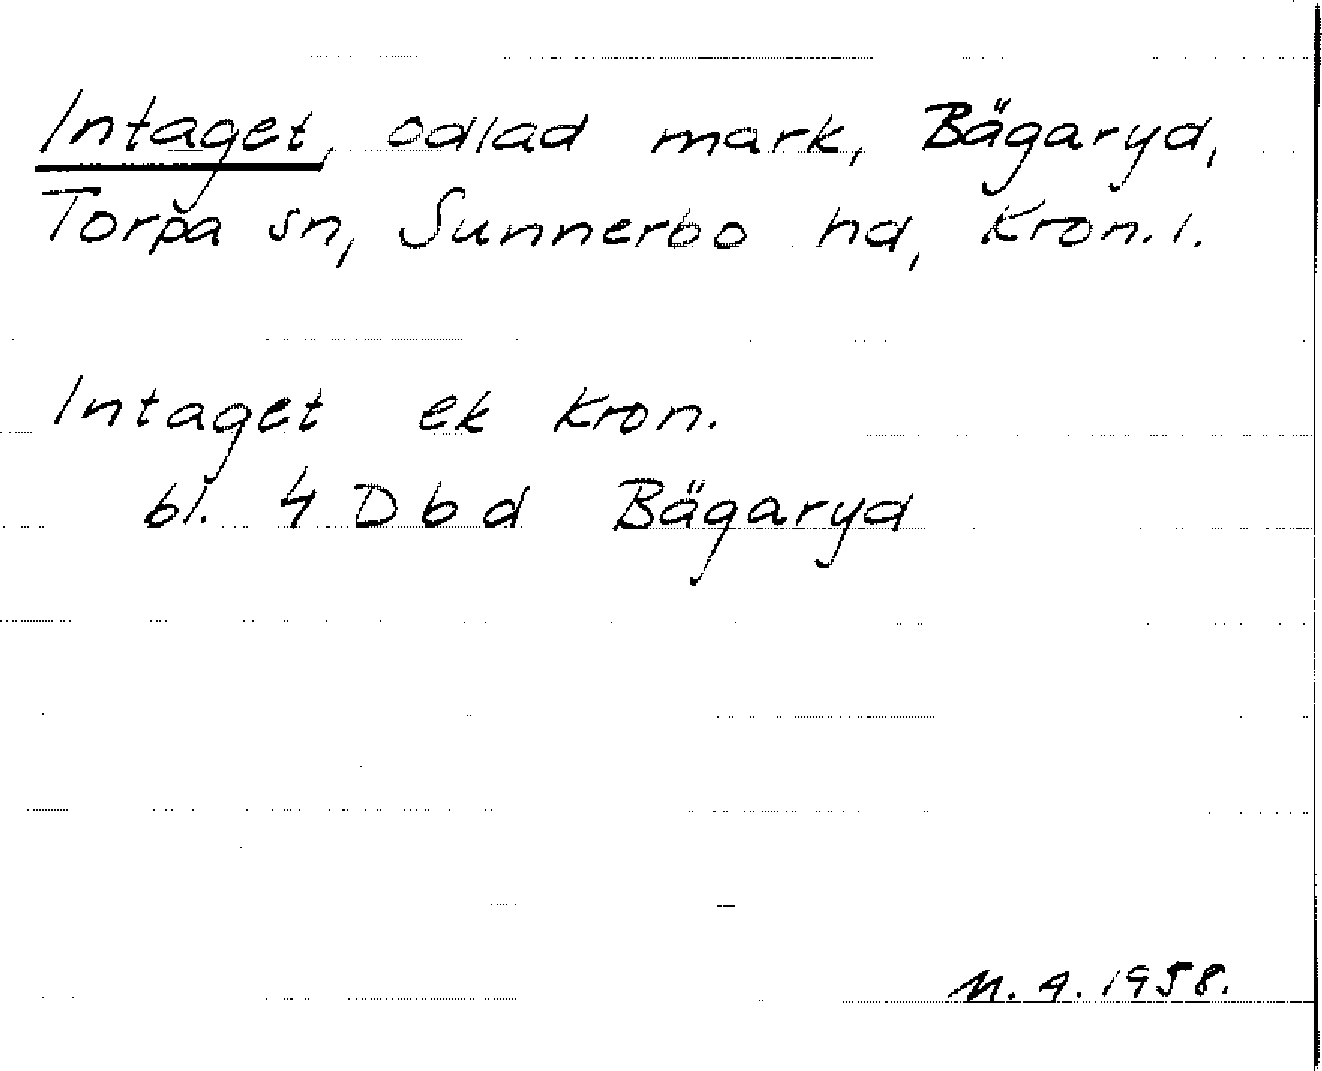 Intaget, odlad mark, Bägaryd,
Torpa sn, Sunnerbo hd, Kron. l.
Intaget ek Kron.
bl. 4 D b d Bägaryd
M. A. 1958.